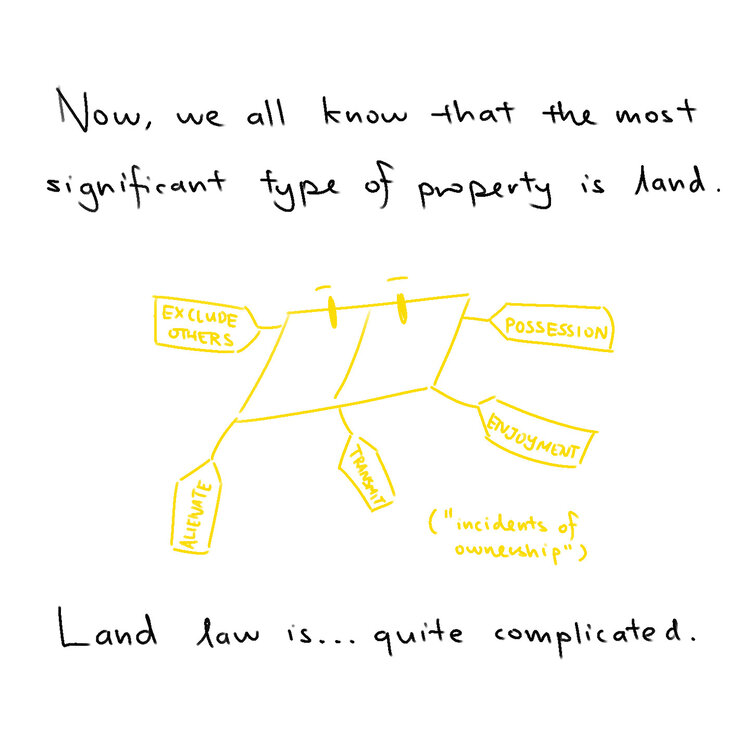 Now, we all know that the most
significant type of property is land.
EXCLUDE
OTHERS
POSSESSION
ENJOYMENT
TRANSMIT
ALIENATE
("incidents of
ownership")
Land law is... quite complicated.